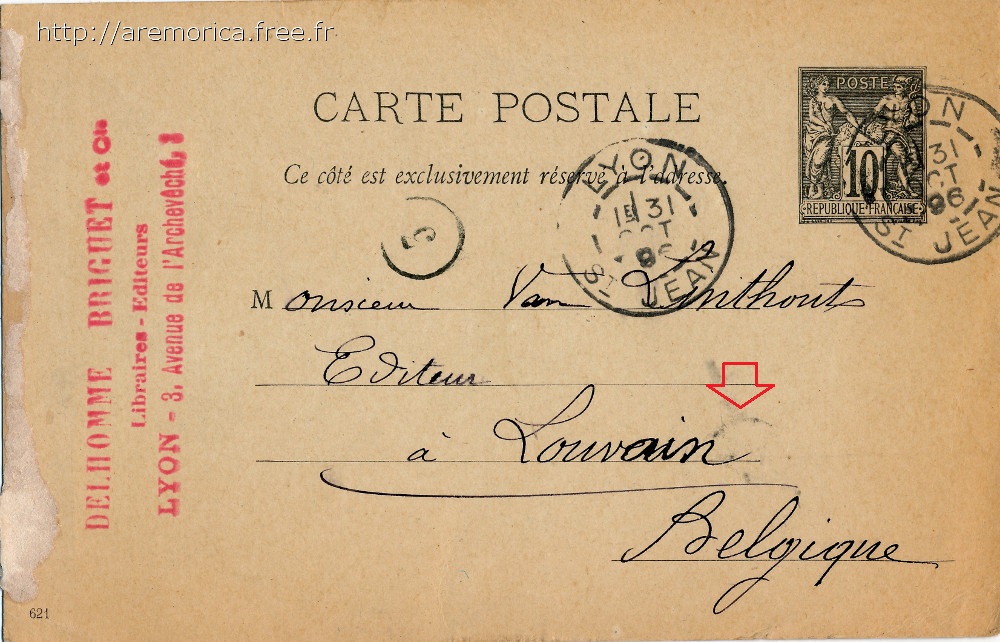 http://aremorica.free.fr
CARTE POSTALE
Ce côté est exclusivement réservé à l'adresse.
POSTE
10
REPUBLIQUE FRANÇAISE
LYON
1E 31
OCT
96
ST JEAN
LYON
31
OCT
96
ST JEAN
5
DELHOMME BRIGUET et Cie
Libraires-Editeurs
LYON - 3, Avenue de l'Archevêché, 3
Monsieur Van Linthout
Editeur
à Louvain
Belgique
621